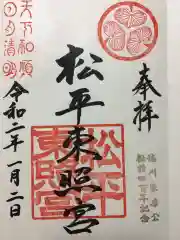 奉拝
徳川家康公
顕彰四百年記念
松平東照宮
松平
東照宮
天下和順
日月清明
令和二年一月二日